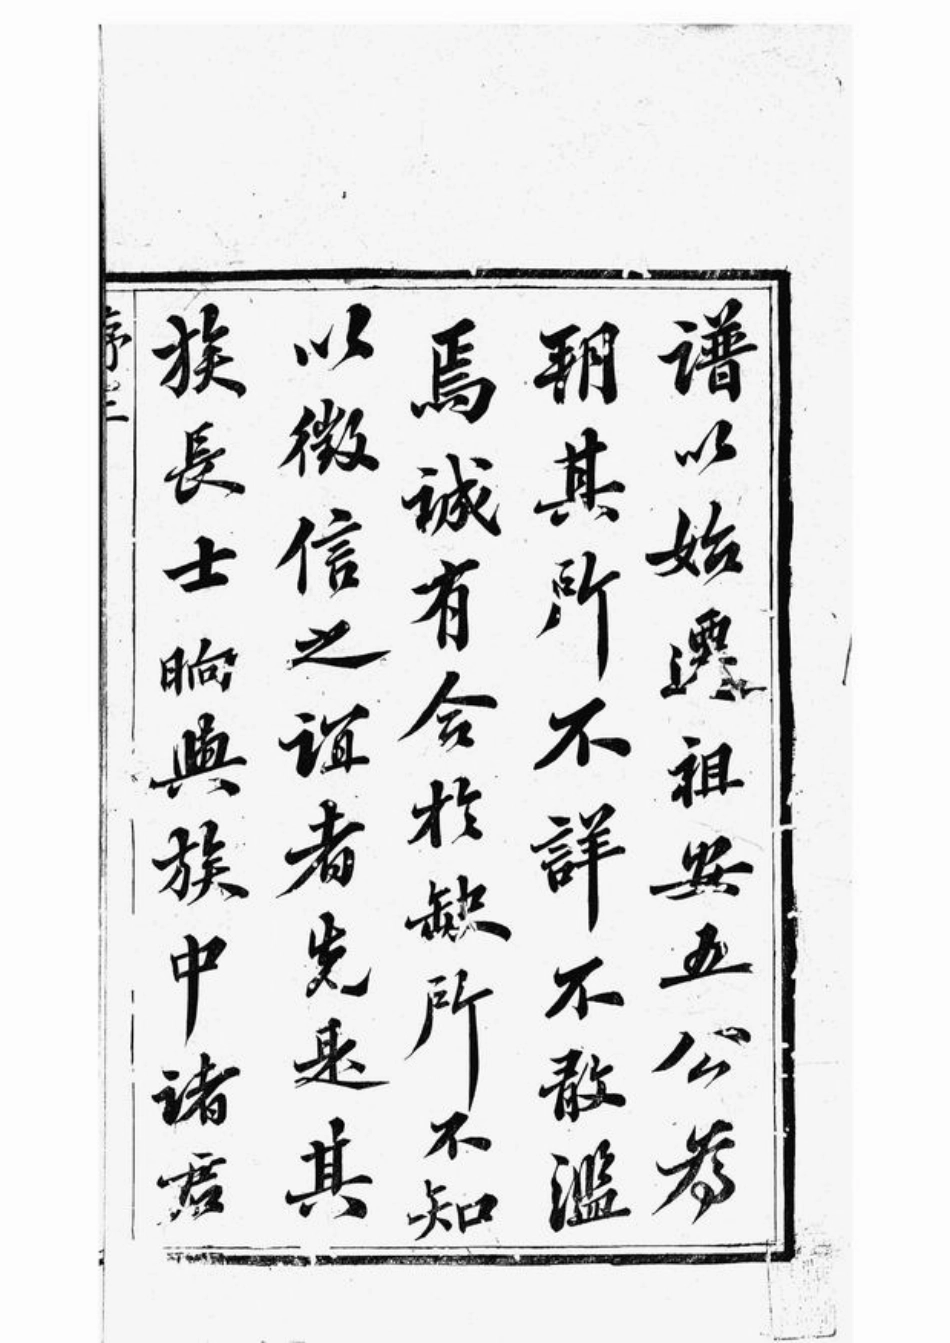 譜以始遷祖安五公為
朙其所不詳不敢濫
焉誠有合於缺所不知
以徵信之誼者先是其
族長士晌與族中諸君
序 三